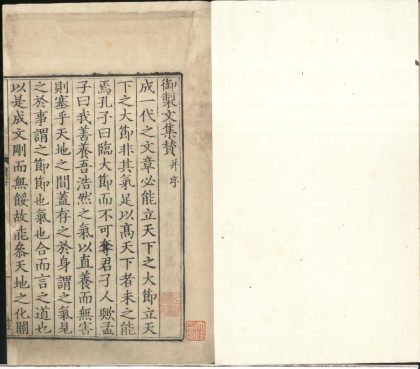 御製文集贊并序
成一代之文章必能立天下之大節立天
下之大節非其氣足以髙天下者未之能
焉孔子曰臨大節而不可奪君子人歟孟
子曰我善養吾浩然之氣以直養而無害
則塞乎天地之間蓋存之於身謂之氣見
之於事謂之節節也氣也合而言之道也
以是成文剛而無餒故能叅天地之化關